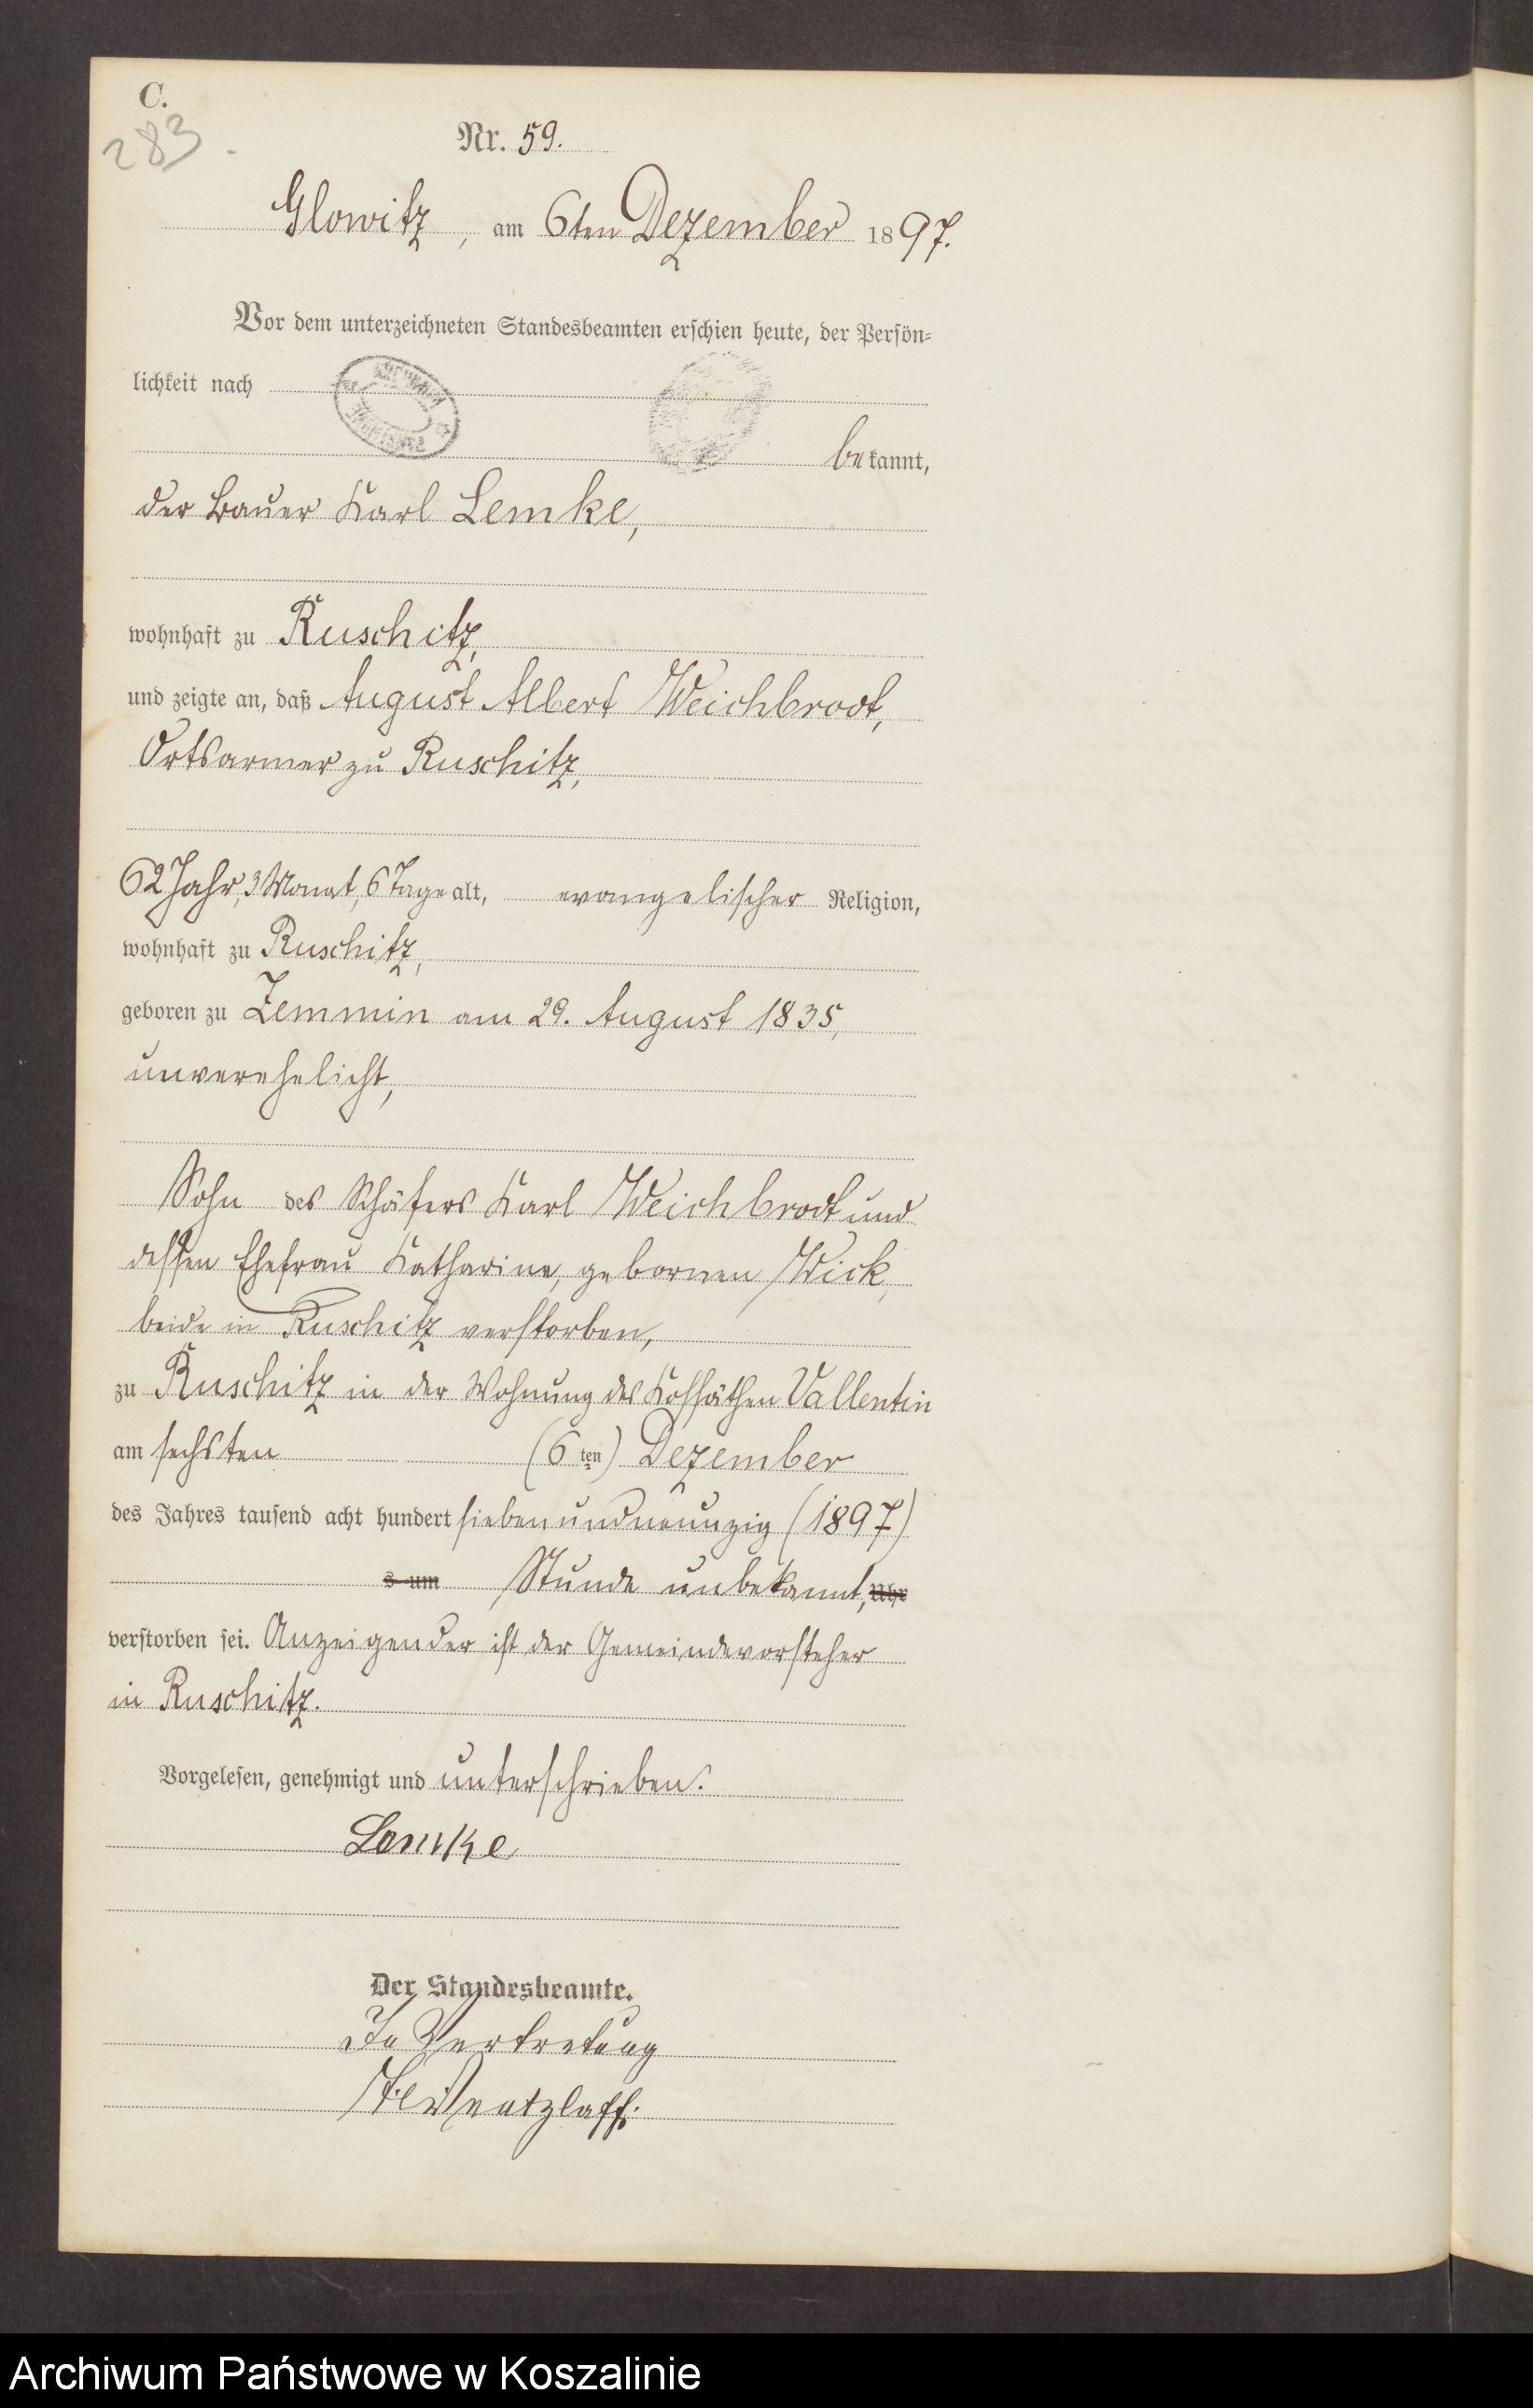 C.
283.
Nr. 59.
Glowitz, am 6ten Dezember 1897.
Vor dem unterzeichneten Standesbeamten erschien heute, der Persön-
lichkeit nach
bekannt,
der Bauer Karl Lemke,
wohnhaft zu Ruschitz,
und zeigte an, daß August Albert Weichbrodt,
Ortsarmer zu Ruschitz,
62 Jahr, 3 Monat, 6 Tage alt, evangelischer Religion,
wohnhaft zu Ruschitz,
geboren zu Zemmin am 29. August 1835,
unverehelicht,
Sohn des Schäfers Karl Weichbrodt und
dessen Ehefrau Katharine, gebornen Wick,
beide in Ruschitz verstorben,
zu Ruschitz in der Wohnung des Kossäthen Vallentin
am sechsten (6ten) Dezember
des Jahres tausend acht hundert siebenundneunzig (1897)
s um Stunde unbekannt, Uhr
verstorben sei. Anzeigender ist der Gemeindevorsteher
in Ruschitz.
Vorgelesen, genehmigt und unterschrieben.
Lemke
Der Standesbeamte.
In Vertretung
Wentzlaff.
Archiwum Państwowe w Koszalinie